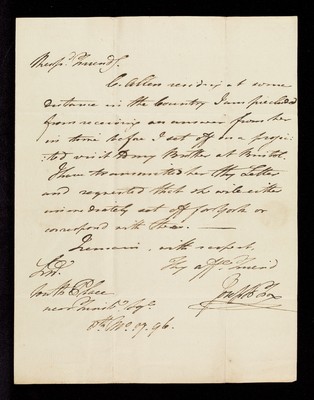 Resp.d Friend,
C. Allen residing at some
distance in the Country I am precluded
from receiving an answer from her
in time before I set off on a projec-
-ted visit to my Brother at Bristol.
I have transmitted her thy Letter
and requested that she will either
immediately set off for York or
correspond with thee. —
I remain, with respect,
Thy aff.te Friend
Joseph Fox
Place
near
Mo. 96.